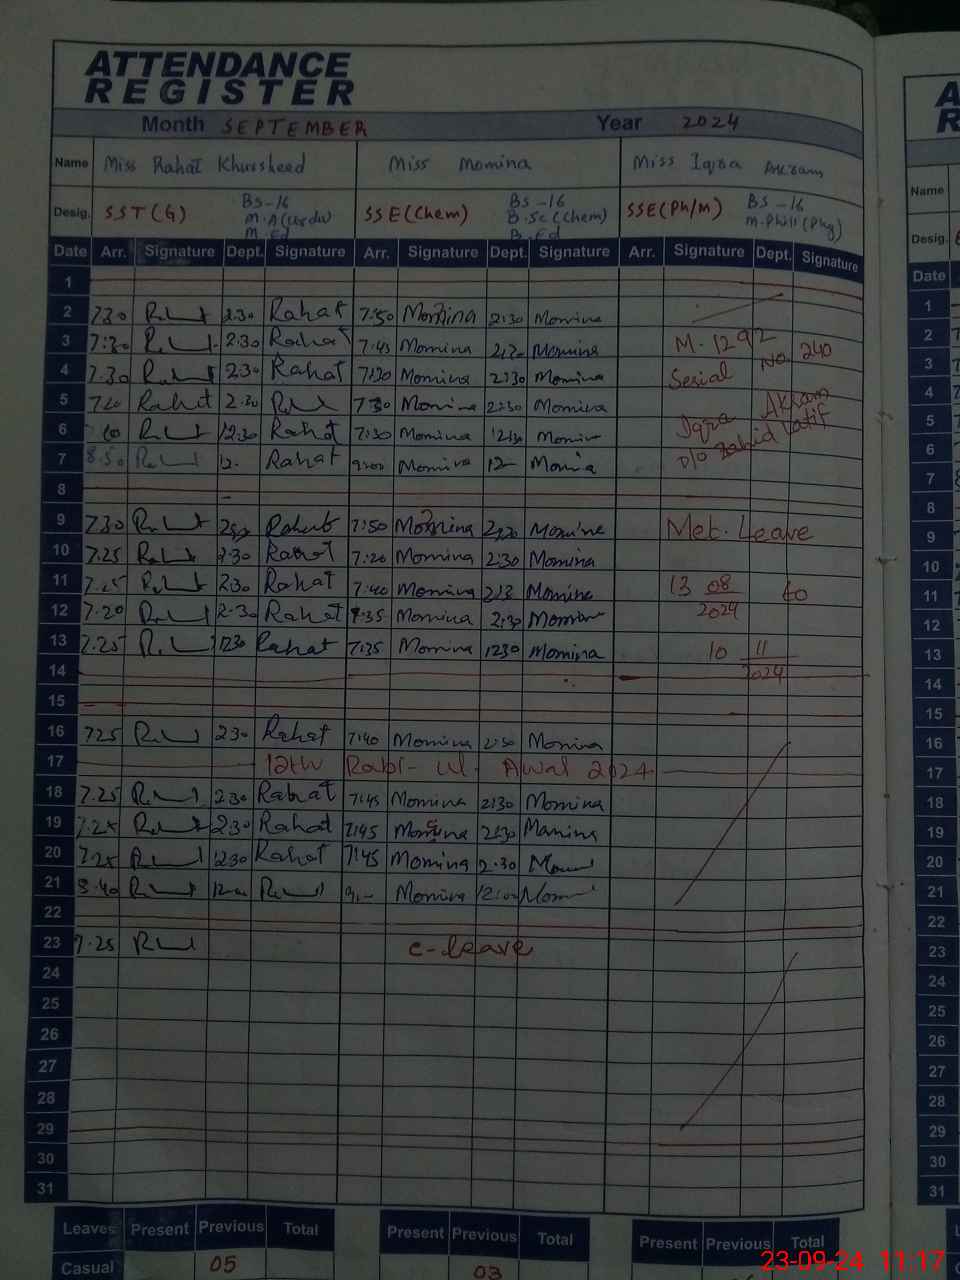 ATTENDANCE
REGISTER
Month SEPTEMBER Year 2024
Name Miss Rahat Khursheed Miss Momina Miss Iqra Akram
Desig. SST(G) BS-16 SSE(Chem) BS-16 SSE(Ph/M) BS-16
M.A(Urdu) B.Sc(Chem) M.Phill(Phy)
M.Ed B.Ed
Date Arr. Signature Dept. Signature Arr. Signature Dept. Signature Arr. Signature Dept. Signature
1
2 7.30 2.30 Rahat 7:50 Momina 2:30 Momina
3 7:30 2.30 Rahat 7:45 Momina 2:30 Momina M. 1292
4 7.30 2.30 Rahat 7:30 Momina 2:30 Momina Serial No. 240
5 Rahat 2.30 7:30 Momina 2:30 Momina Iqra Akram
6 12.30 Rahat 7:30 Momina 12:30 Momina D/O Zahid Latif
7 8.50 12. Rahat 9:00 Momina 12- Momina
8
9 7.30 Rahat 7:50 Momina 2:30 Momina Met. Leave
10 7.25 2.30 Rahat 7:20 Momina 2:30 Momina
11 7.25 2.30 Rahat 7:40 Momina Momina 13 08 2024 to
12 7.20 2.30 Rahat 7:35 Momina 2:30 Momina
13 7.25 1230 Rahat 7:35 Momina 1230 Momina 10 11 2024
14
15
16 7.25 2.30 Rahat 7:40 Momina 2:30 Momina
17 12th Rabi-ul-Awal 2024
18 7.25 2.30 Rahat 7:45 Momina 2:30 Momina
19 7.25 2.30 Rahat 7:45 Momina 2:30 Momina
20 7.25 1230 Rahat 7:45 Momina 2.30
21 8.40 9:- Momina 12:00
22
23 7.25 C-leave
24
25
26
27
28
29
30
31
Leaves Present Previous Total Present Previous Total Present Previous Total
Casual 05 03
23-09-24 11:17
Name
Desig.
Date
1
2
3
4
5
6
7
8
9
10
11
12
13
14
15
16
17
18
19
20
21
22
23
24
25
26
27
28
29
30
31